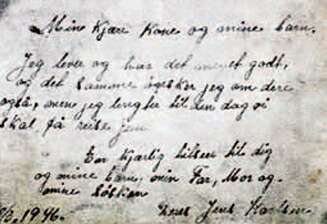 Mine Kjære Kone og mine barn.
Jeg lever og har det meget godt,
og det samme ønsker jeg om dere
også, men jeg lengter til den dag vi
skal få reise hjem
En kjærlig hilsen til dig
og mine barn, min Far, Mor og
mine søsken
Jens Karlsen
1946.